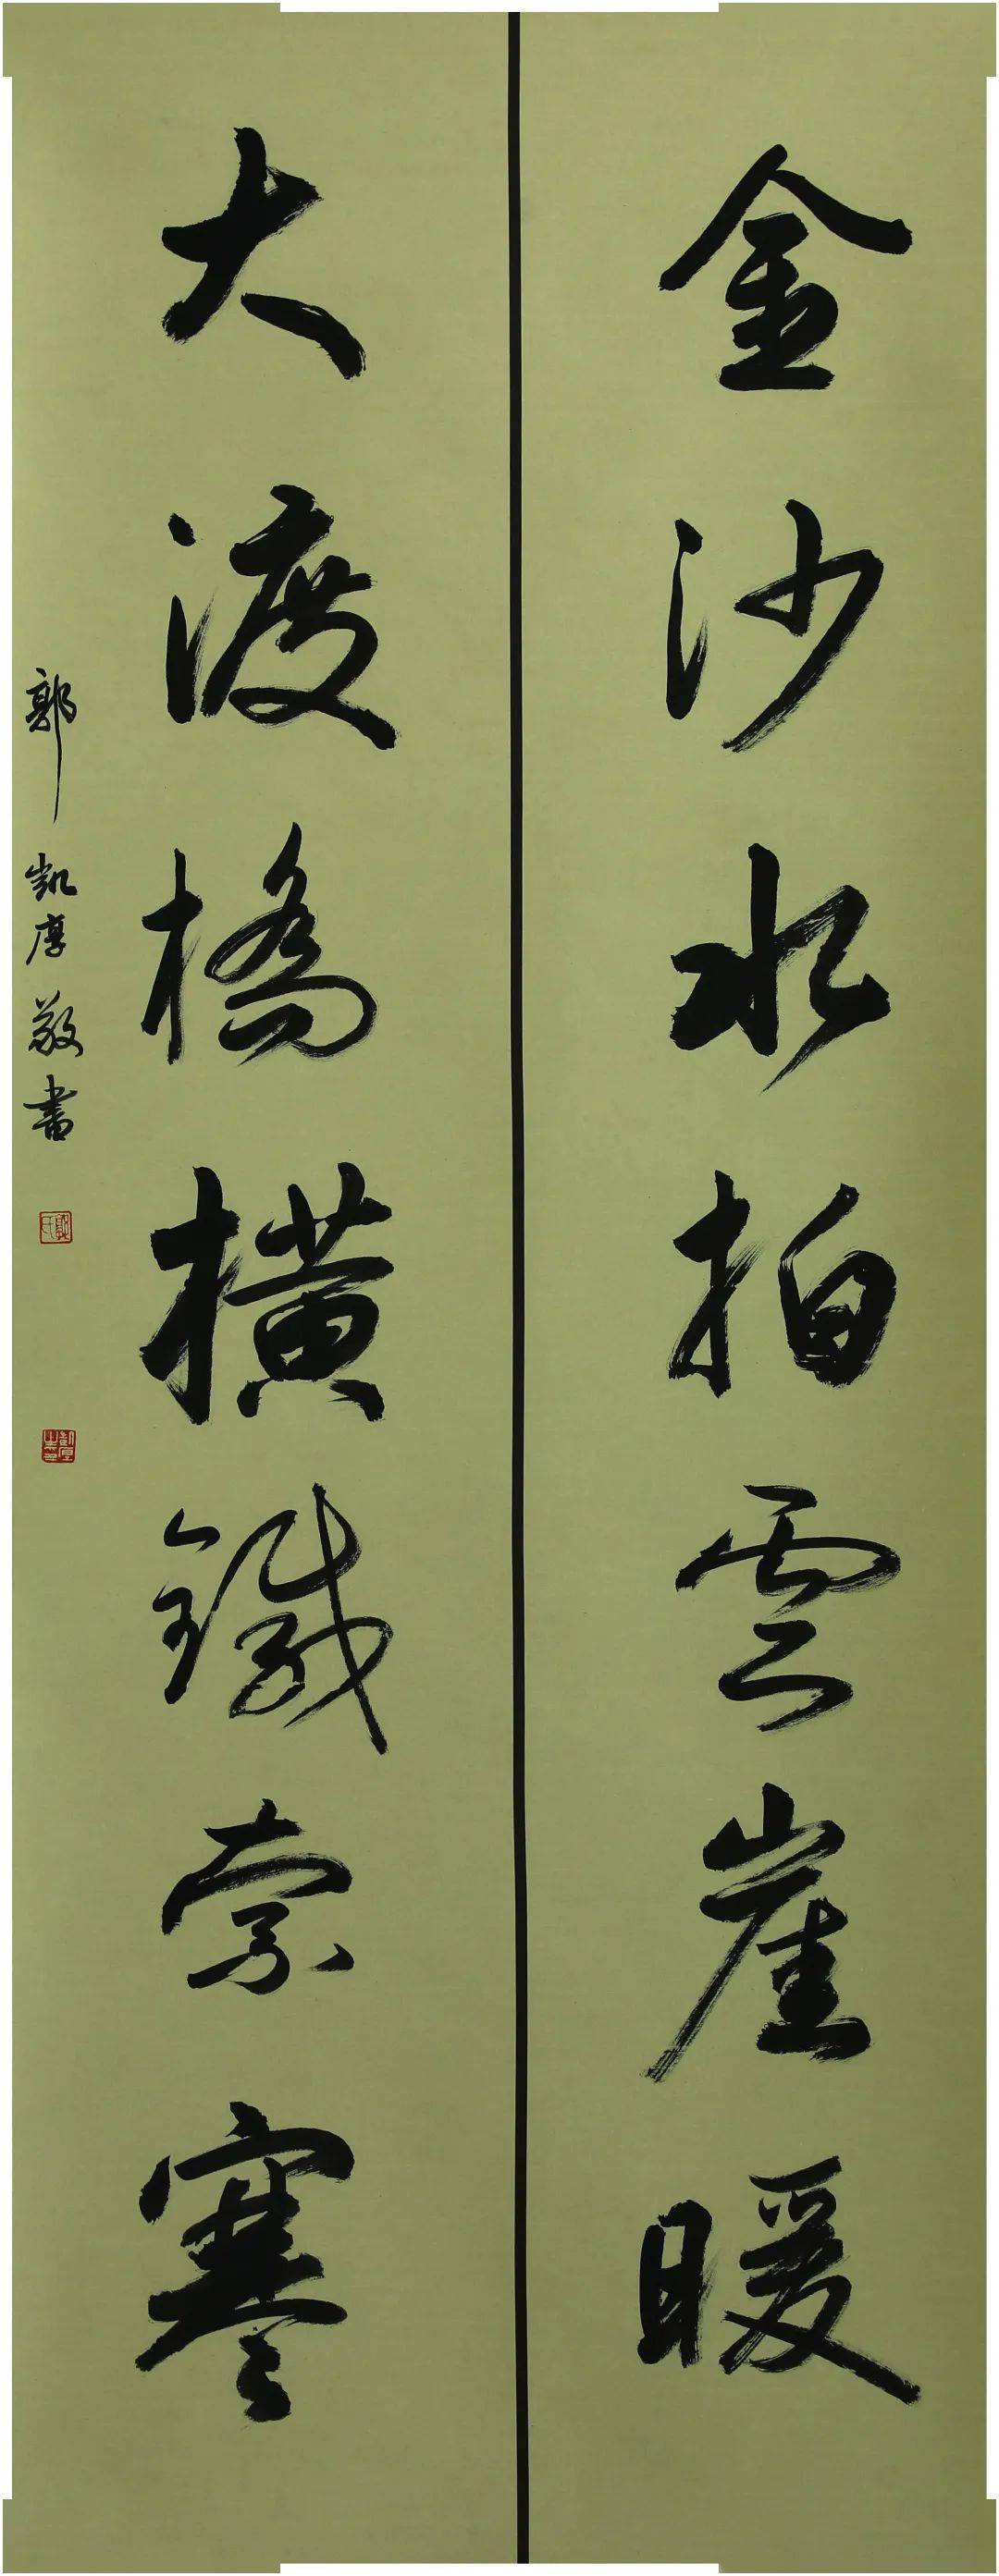 金沙水拍雲崖暖
大渡橋橫鐵索寒
郭凱厚敬書